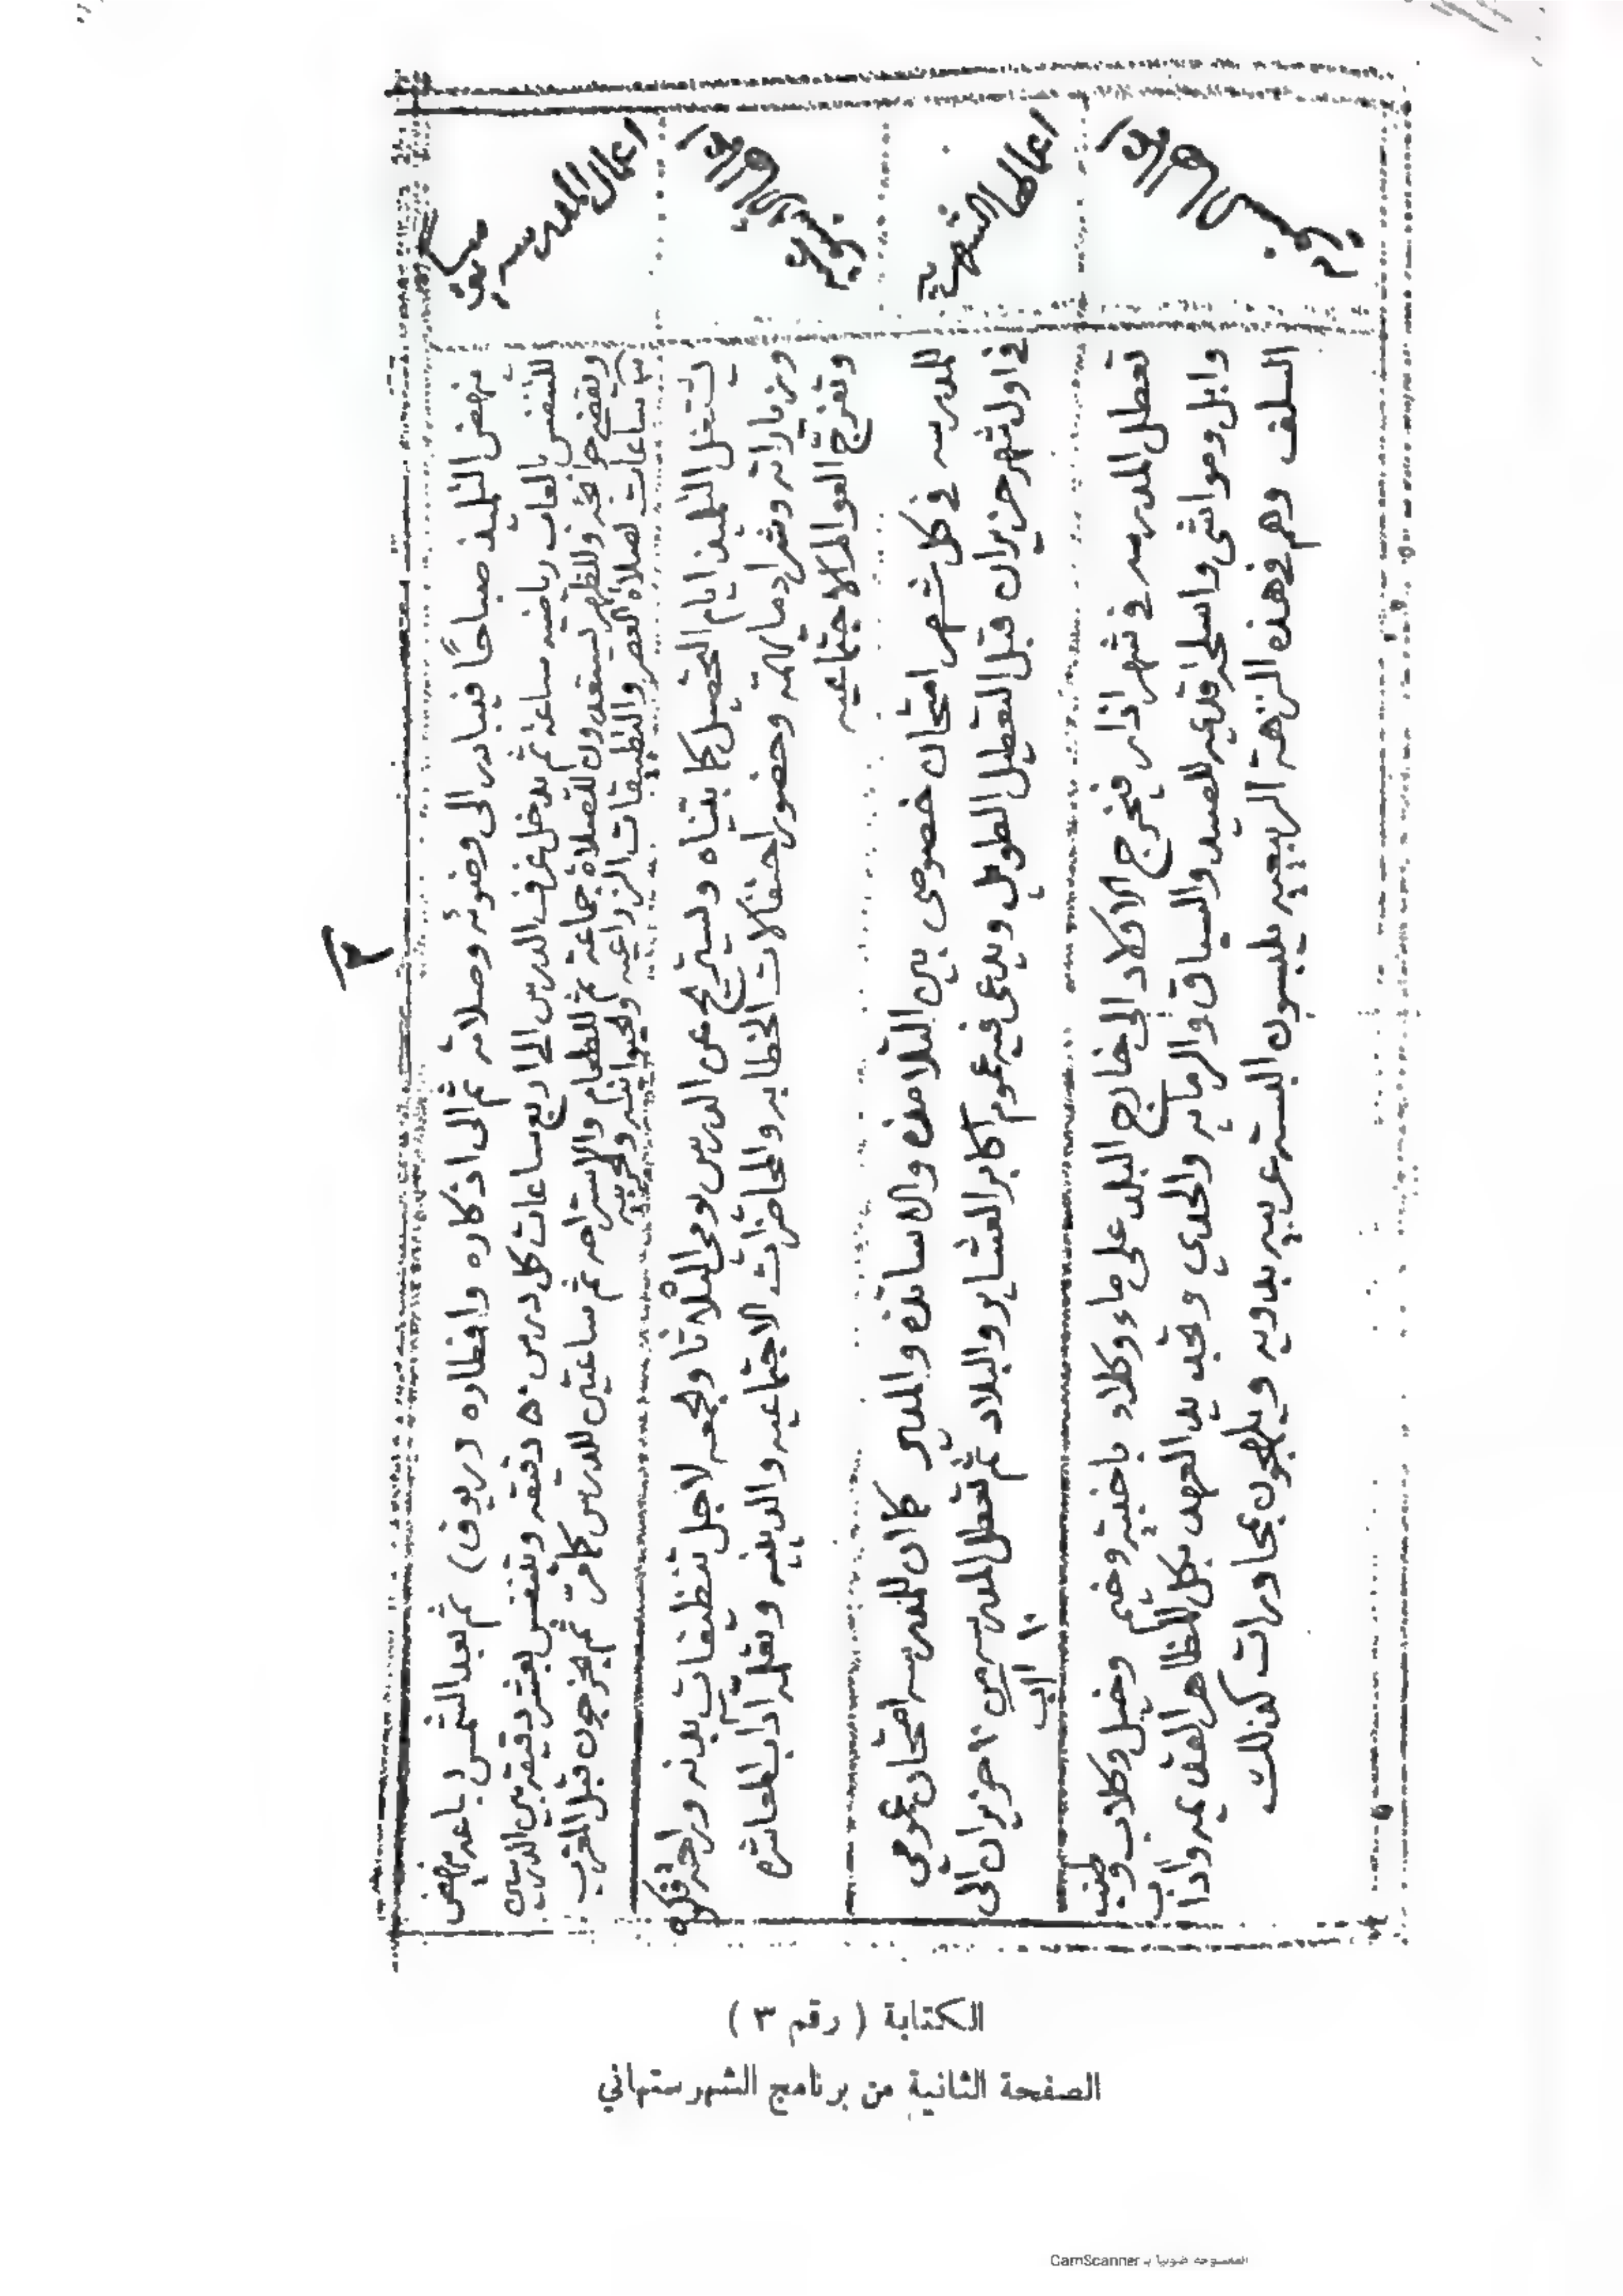 ٢
اعمال المدرسه يوميه
ينهض التلميذ صباحًا فيبادر الى وضوئه وصلاته ثم الى اذكاره وافطاره (ريوق) ثم بعد الشمس بساعه ينهض
للتنفس بالعاب رياضيه ساعه ثم يدخل غرف الدرس الى اربع ساعات كل درس ٥٠ دقيقه وتنفس بعشر دقيقه بين الدرسين
ويقضي حوائجه وللظهر يستعدون للصلاة جماعة ثم للطعام والاستراحه ثم ساعتين للدرس كما مرّ ثم يخرجون قبل المغرب
ساعات لصلاة العصر والتطبيقات الزراعيه والحيوانيه والحربيه
يشتغل التلميذ ايام التحصيل كما بيناه ويستريح عن الدرس يومي الثلاثا والجمعه لاجل تنظيفات بدنه وراحة فكره
وزياراته وشراء ما يهمه وحضور احتفالات الخطابه والمحاضرات الاجتماعيه والدينيه وتعلمه آداب المعاشره
وتفرّج العوالم الاجتماعيه
اعمالها الشهريه
للمدرسه في كل شهر امتحان خصوصي بين التلامذه والاساتذه والمدير كما ان للمدرسه امتحان عمومي
في اول شهر حزيران قبل التعطيل الطويل ويدعى فيه عموم اكابر العشاير والبلاد ثم تعطل المدرسه من ١٠ حزيران الى
١٠ اب
تعطل المدرسه في شهر اذار فيخرج الاولاد الى خارج البلد على ماء وكلاء باخبية وخيم وخيل وكلاب وطنب
وابل ومواشي واسلحة قديمه للصيد والسباق والرمايه والحدي وتجديد العهد بكل المظاهر القديمه واداب
السلف وهم في هذه النزهة الربيعيه يلبسون البسة عربيه بدويه ويلهجون بمحاورات كذلك
الكتابة ( رقم ٣ )
الصفحة الثانية من برنامج الشهرستاني
الممسوحة ضوئيا بـ CamScanner